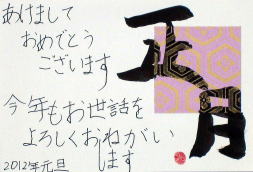 あけまして
おめでとう
ございます
今年もお世話を
よろしくおねがい
します
2012年元旦
正月